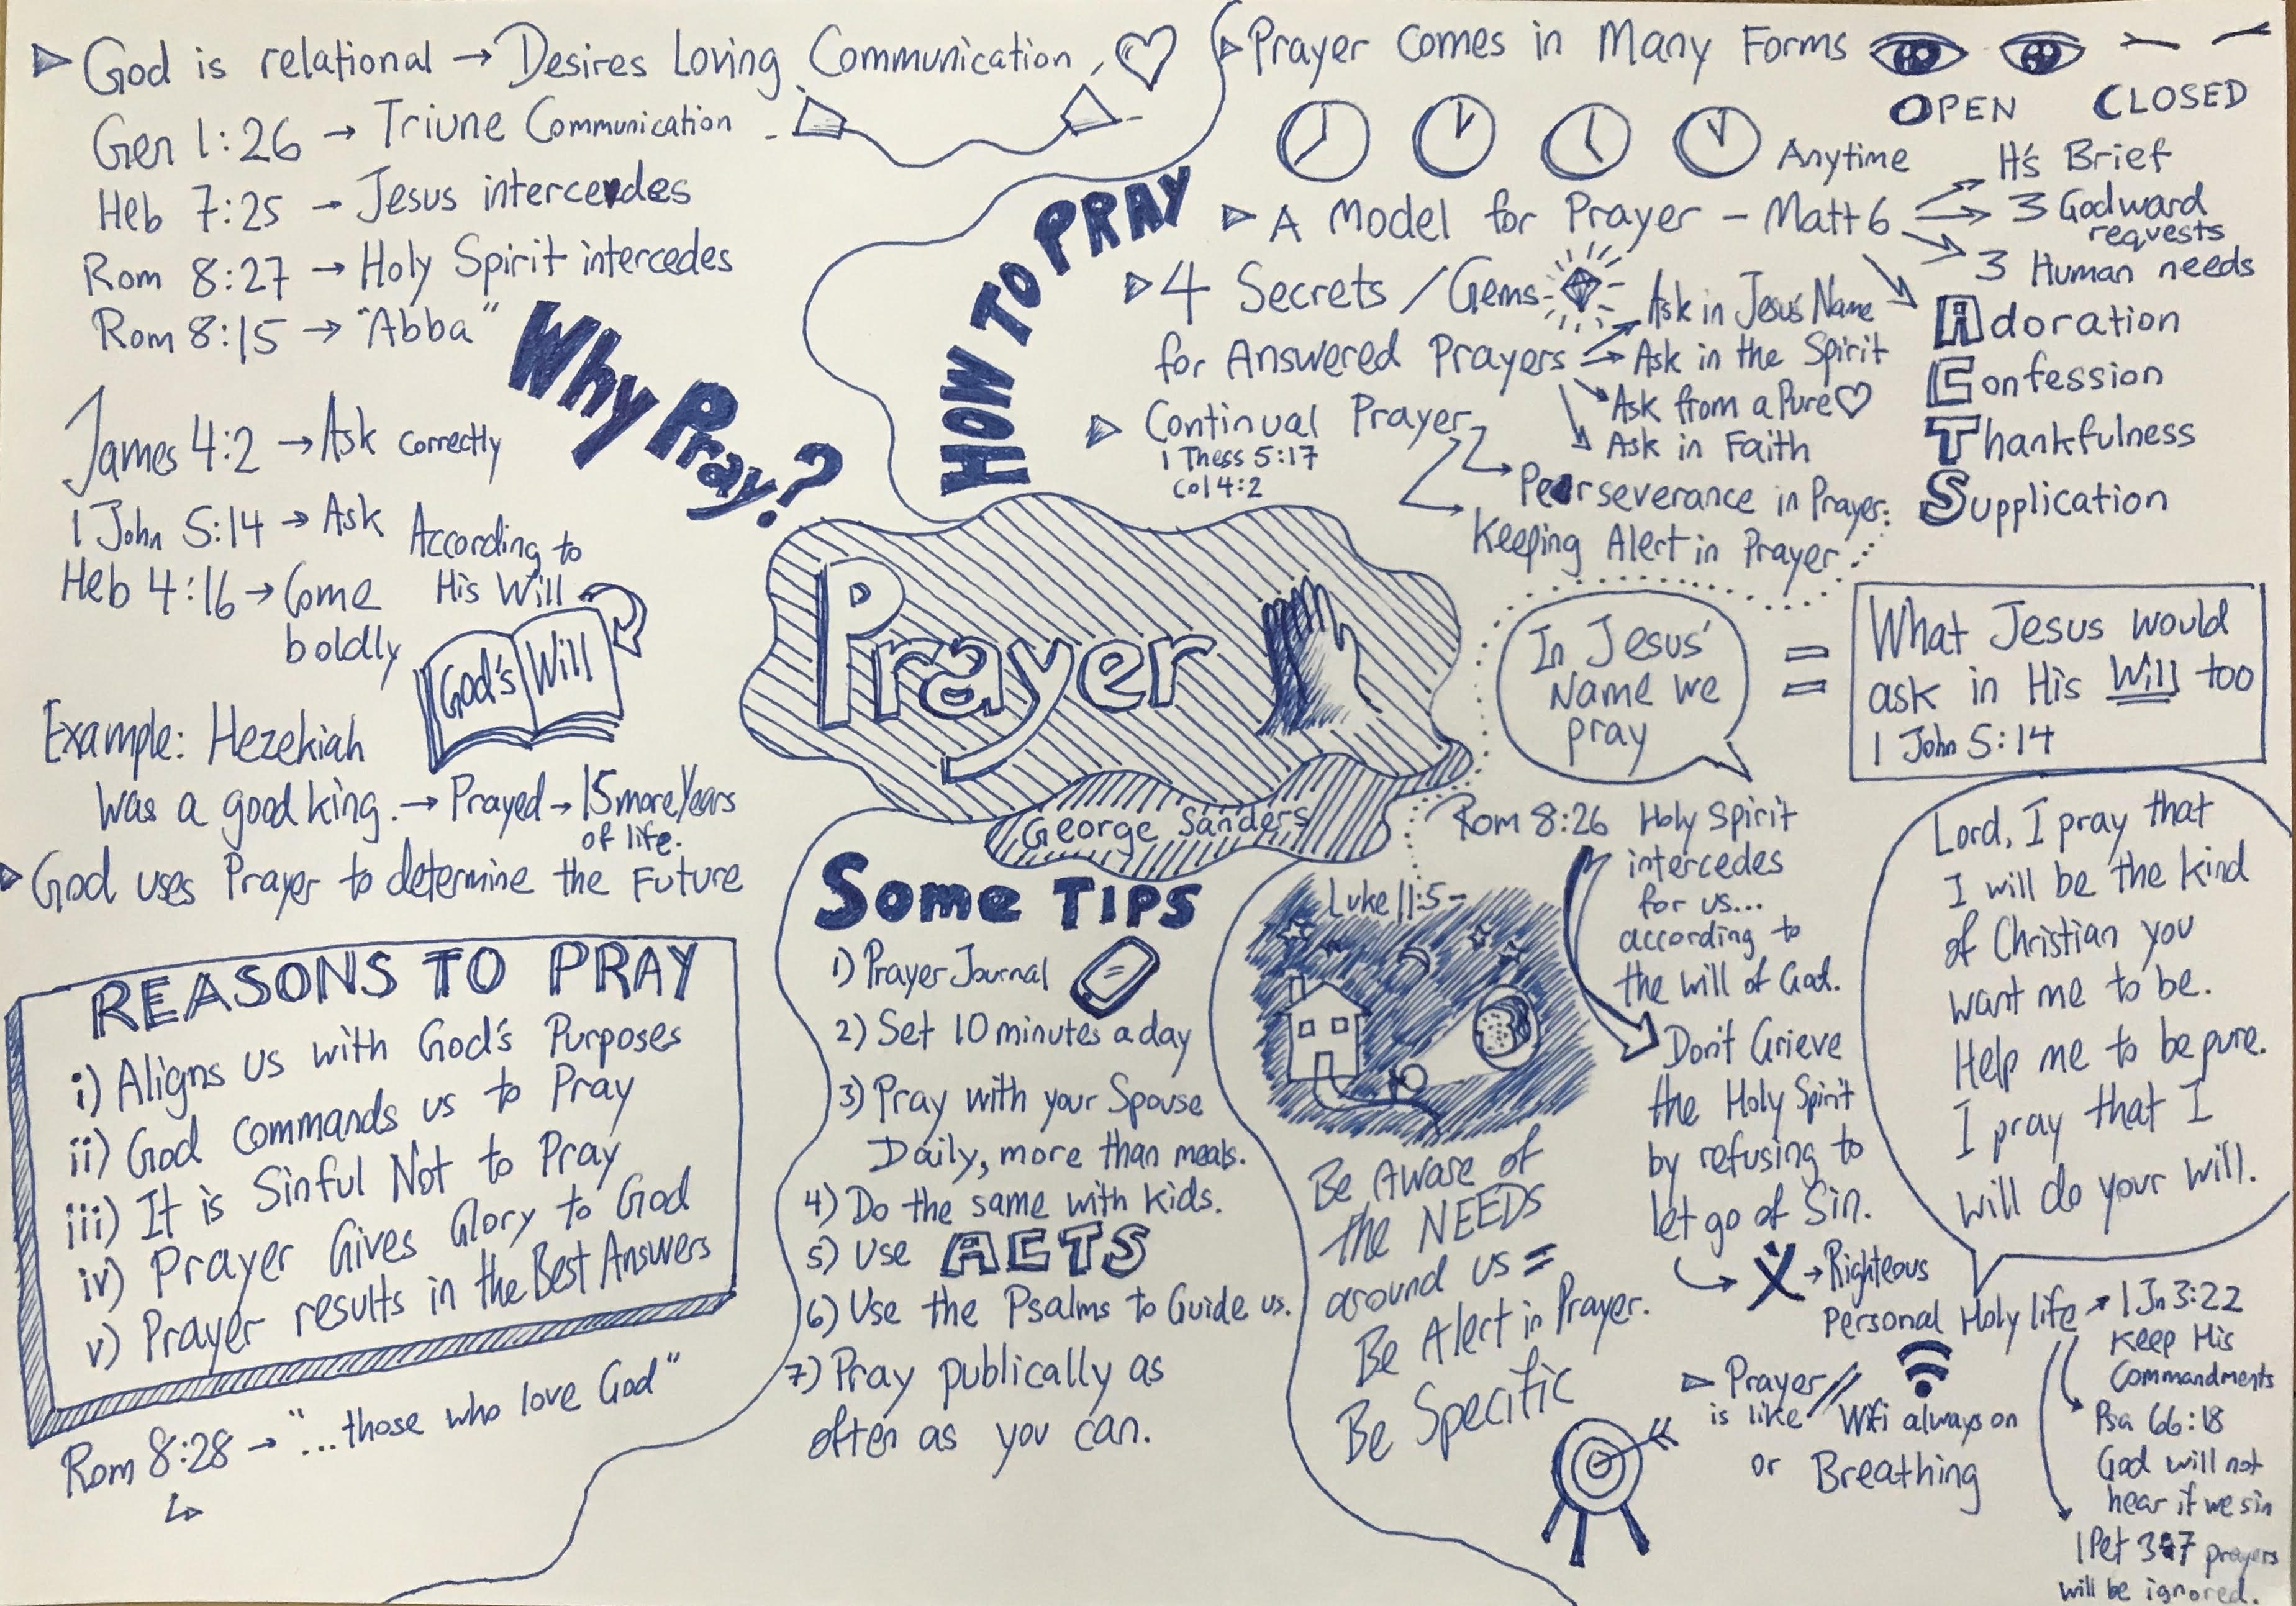 God is relational → Desires Loving Communication
Gen 1:26 → Triune Communication
Heb 7:25 → Jesus intercedes
Rom 8:27 → Holy Spirit intercedes
Rom 8:15 → "Abba"
Why Pray?
James 4:2 → Ask correctly
1 John 5:14 → Ask According to
His Will
Heb 4:16 → Come
boldly
God's Will
Example: Hezekiah
was a good king. → Prayed → 15 more years
of life.
God uses Prayer to determine the Future
REASONS TO PRAY
i) Aligns us with God's Purposes
ii) God commands us to Pray
iii) It is Sinful Not to Pray
iv) Prayer Gives Glory to God
v) Prayer results in the Best Answers
Rom 8:28 → "...those who love God"
Prayer
George Sanders
HOW TO PRAY
Prayer Comes in Many Forms
OPEN CLOSED
Anytime
A Model for Prayer - Matt 6
It's Brief
3 Godward
requests
3 Human needs
Adoration
Confession
Thankfulness
Supplication
4 Secrets / Gems
for Answered Prayers
Ask in Jesus' Name
Ask in the Spirit
Ask from a Pure ♡
Ask in Faith
Continual Prayer
1 Thess 5:17
Col 4:2
Perseverance in Prayer
Keeping Alert in Prayer
In Jesus'
Name we
pray
=
What Jesus would
ask in His Will too
1 John 5:14
Rom 8:26 Holy Spirit
intercedes
for us...
according to
the will of God.
Don't Grieve
the Holy Spirit
by refusing to
let go of Sin.
X → Righteous
Personal Holy life → 1 Jn 3:22
Keep His
Commandments
Psa 66:18
God will not
hear if we sin
1 Pet 3:7 prayers
will be ignored.
Lord, I pray that
I will be the kind
of Christian you
want me to be.
Help me to be pure.
I pray that I
will do your will.
Prayer
is like // Wifi always on
or Breathing
Luke 11:5-
Be Aware of
the NEEDS
around us =
Be Alert in Prayer.
Be Specific
Some TIPS
1) Prayer Journal
2) Set 10 minutes a day
3) Pray with your Spouse
Daily, more than meals.
4) Do the same with kids.
5) Use ACTS
6) Use the Psalms to Guide us.
7) Pray publically as
often as you can.